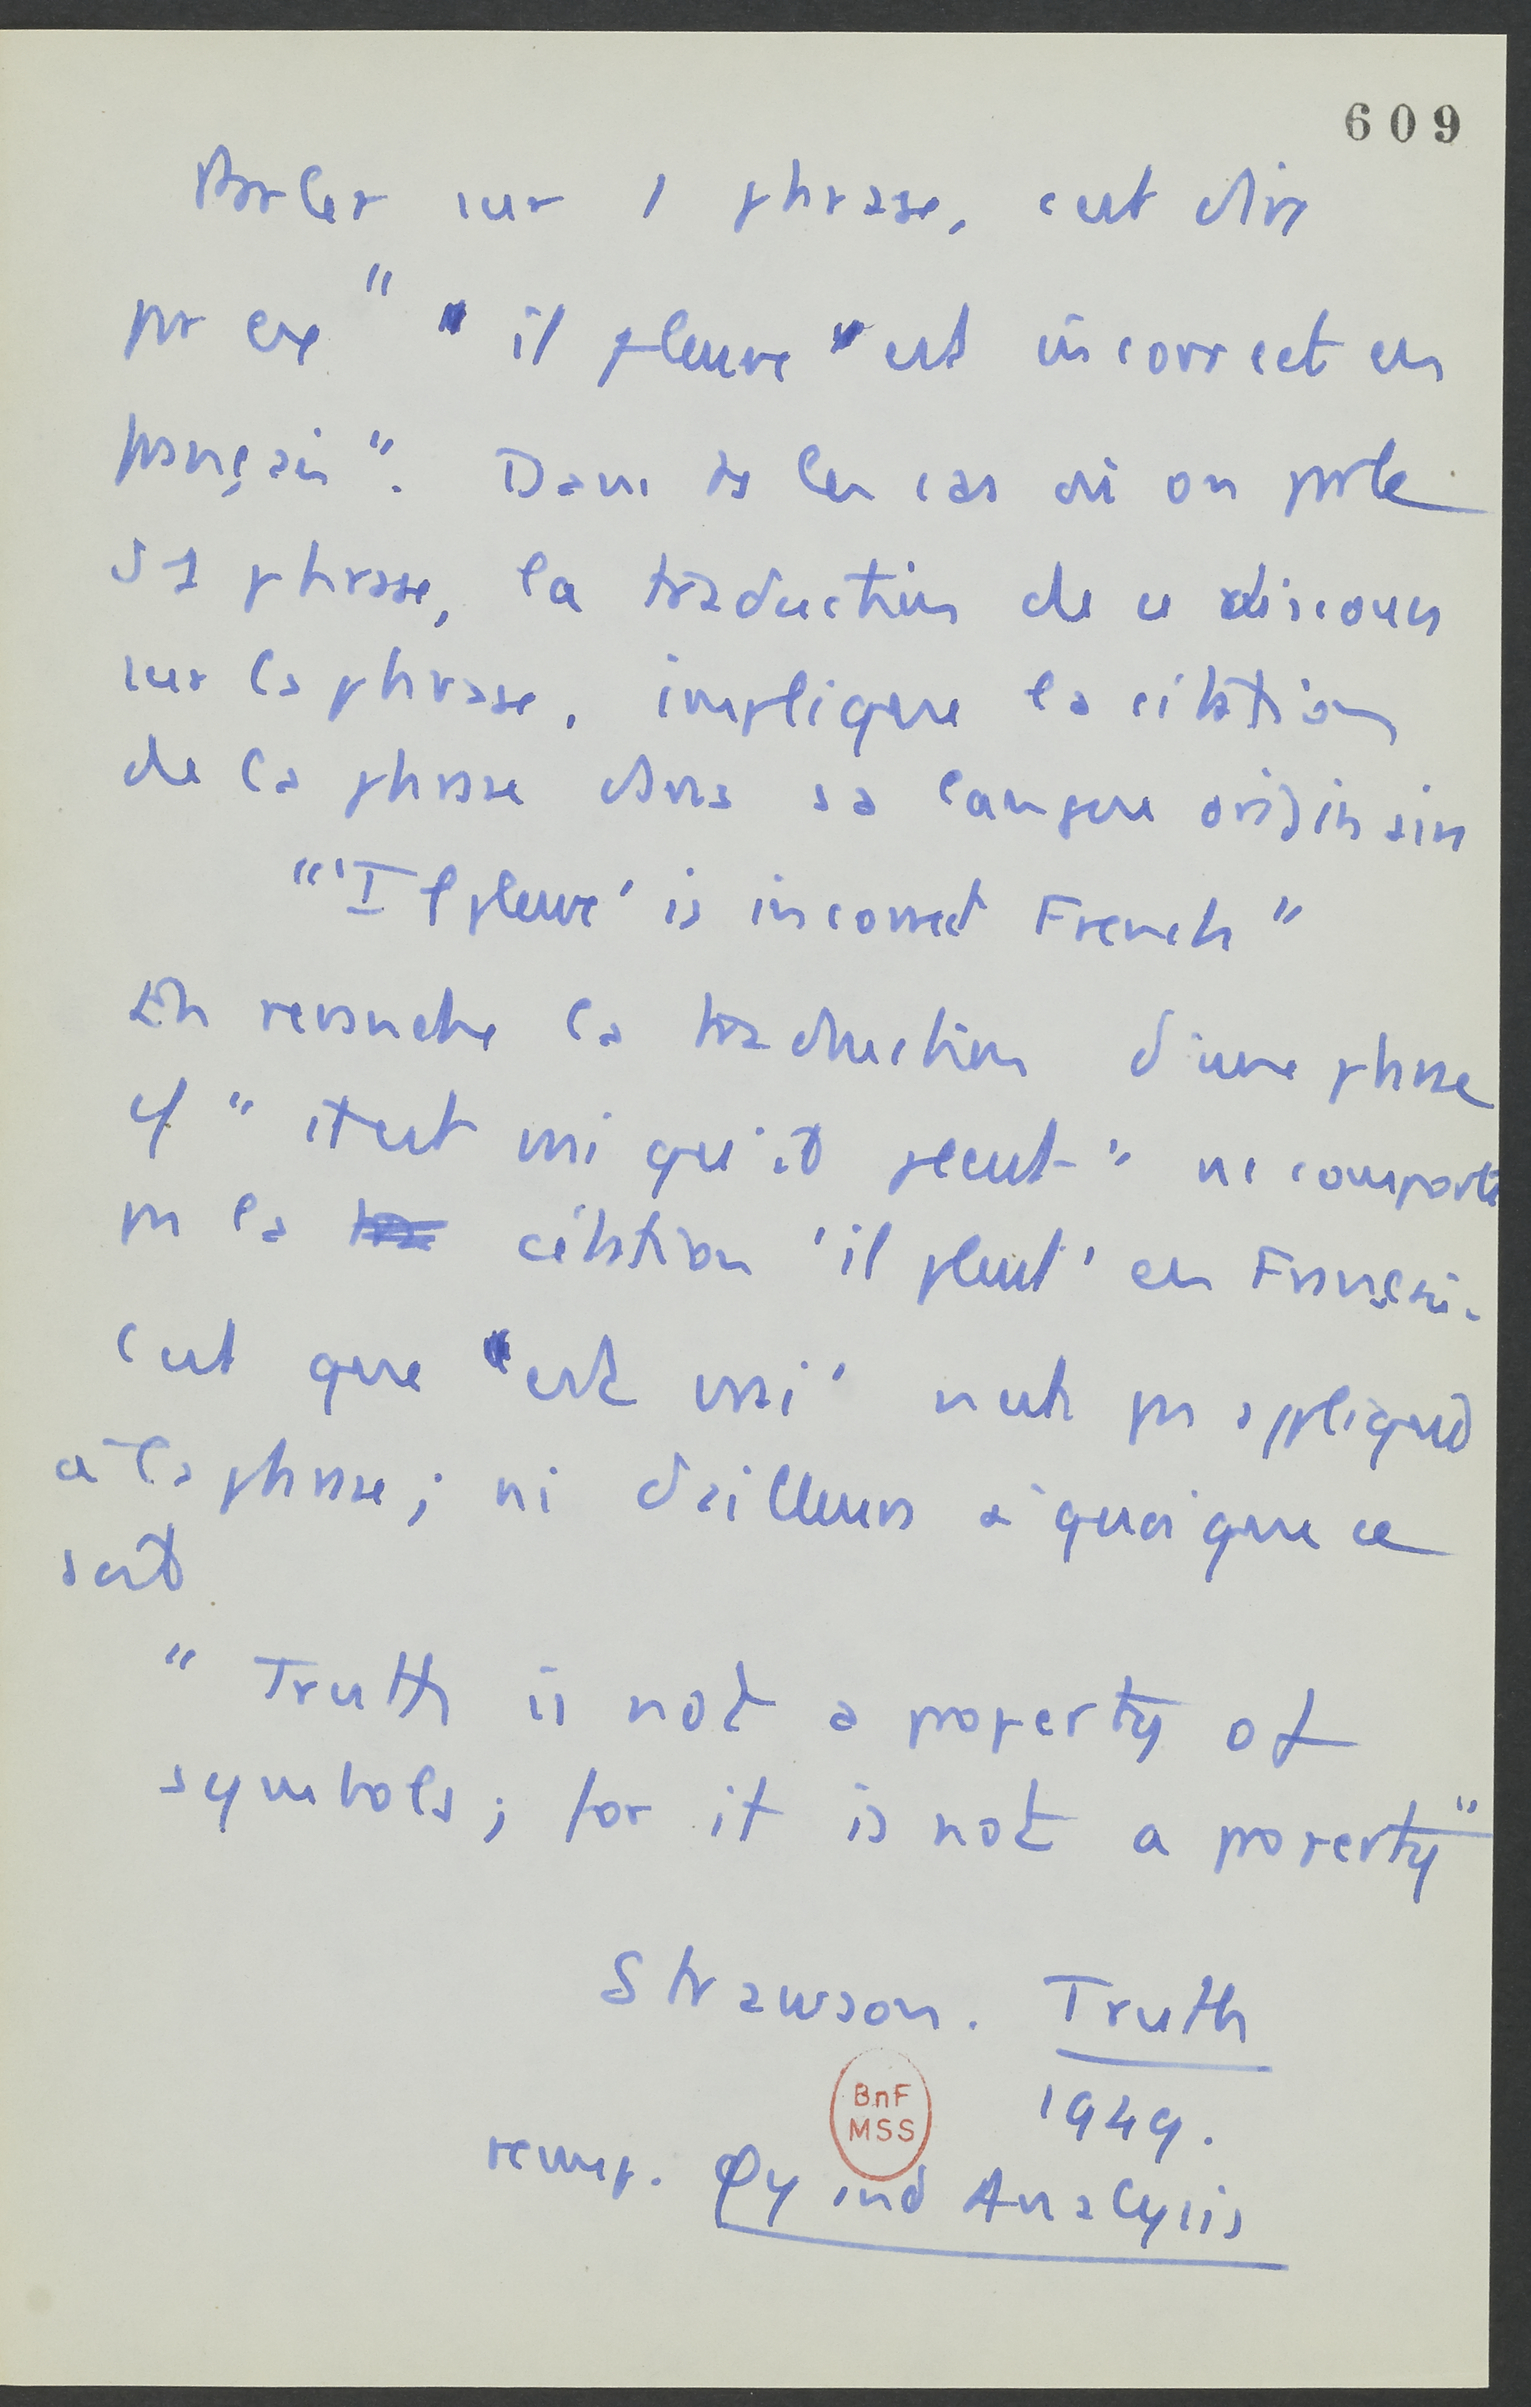 609
Parler sur 1 phrase, c'est dire
par ex " " il pleuve " est incorrect en
français ". Dans ts les cas où on parle
d 1 phrase, la traduction de ce discours
sur la phrase, implique la citation
de la phrase dans sa langue originaire
" 'Il pleuve' is incorrect French "
En revanche la traduction d'une phrase
cf " il est vrai qu'il pleut " ne comporte
pas la citation 'il pleut' en Français.
C'est que 'est vrai' n'est pas appliqué
à la phrase ; ni d'ailleurs à quoi que ce
soit
" Truth is not a property of
symbols ; for it is not a property "
Strawson. Truth
1949.
BnF
MSS
reimp. φy and Analysis